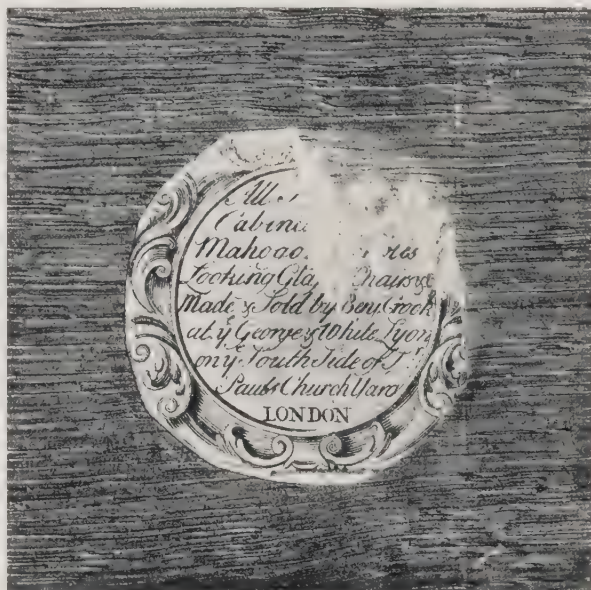 All
Cabine
Mahogo res
Looking Gla Chairs &c
Made & Sold by Benj. Crook
at ye George & White Lyon
on ye South Side of St
Pauls Church Yard
LONDON